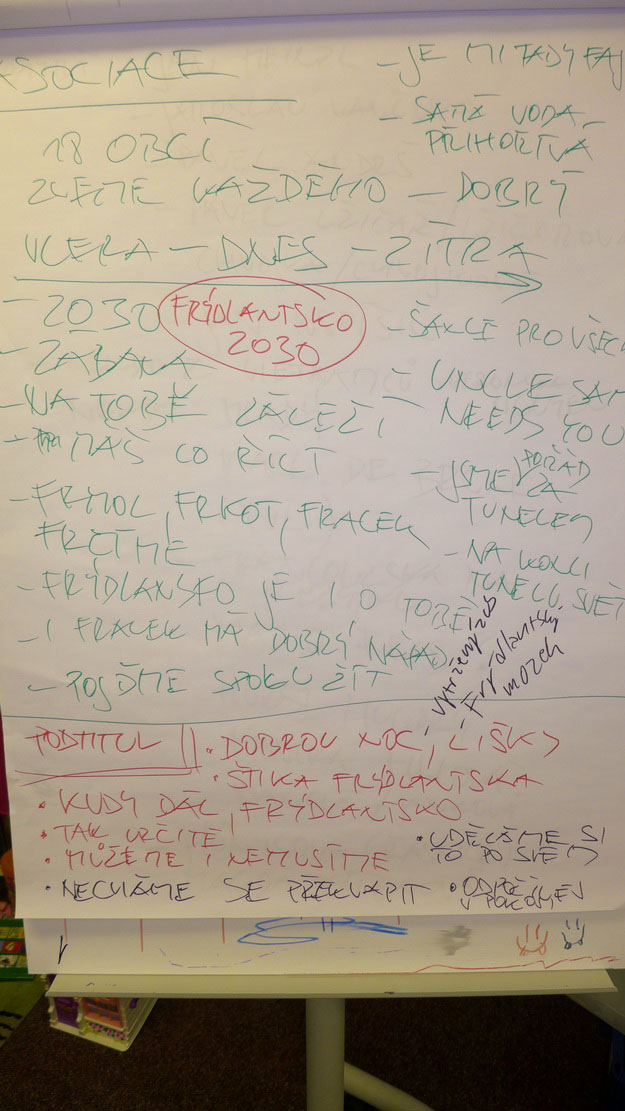 ASOCIACE
- JE MI TADY FAJ
- SAMÁ VODA -
PŘIHOŘÍVÁ
18 OBCÍ
ZVEME KAŽDÉHO - DOBRÝ
VČERA - DNES - ZÍTRA
- 2030
FRÝDLANTSKO
2030
- ŠANCE PRO VŠEC
- ZÁBAVA
- UNCLE SAM
NEEDS YOU
- NA TOBĚ ZÁLEŽÍ
- MÁŠ CO ŘÍCT
- JSME POŘÁD
ZA
TUNELEM
- FRMOL, FRKOT, FRACEK
FRČÍME
- NA KONCI
TUNELU SVĚT
- FRÝDLANSKO JE I O TOBĚ
- I FRACEK MÁ DOBRÝ NÁPAD
- POJĎME SPOLU ŽÍT
- Frýdlantský
mozek
PODTITUL
• DOBROU NOC, LIŠKY
• ŠTIKA FRÝDLANTSKA
• KUDY DÁL, FRÝDLANTSKO
• TAK URČITĚ
• MŮŽEME I NEMUSÍME
• UDĚLÁME SI
TO PO SVÉM
• NECHÁME SE PŘEKVAPIT